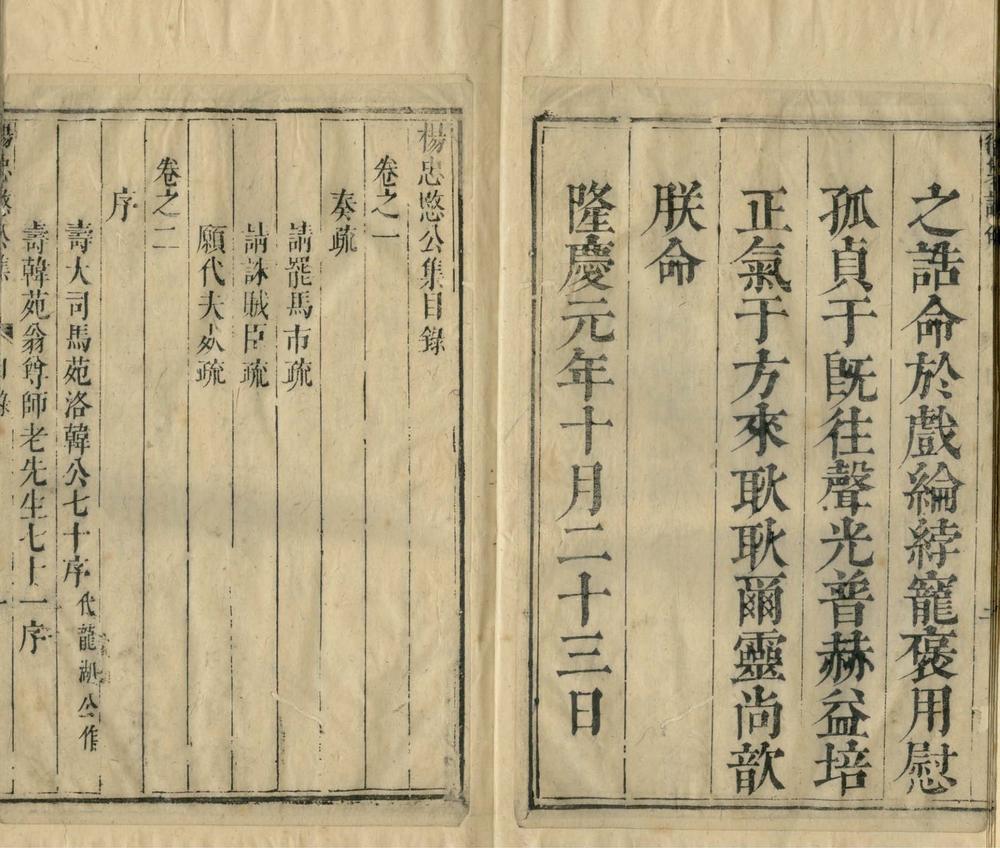 之誥命於戲綸綍寵褒用慰
孤貞于旣往聲光普赫益培
正氣于方來耿耿爾靈尚歆
朕命
隆慶元年十月二十三日
楊忠愍公集目錄
卷之一
奏疏
請罷馬市疏
請誅賊臣疏
願代夫死疏
卷之二
序
壽大司馬苑洛韓公七十序代龍湖公作
壽韓苑翁尊師老先生七十一序
楊忠愍公集 目錄 一